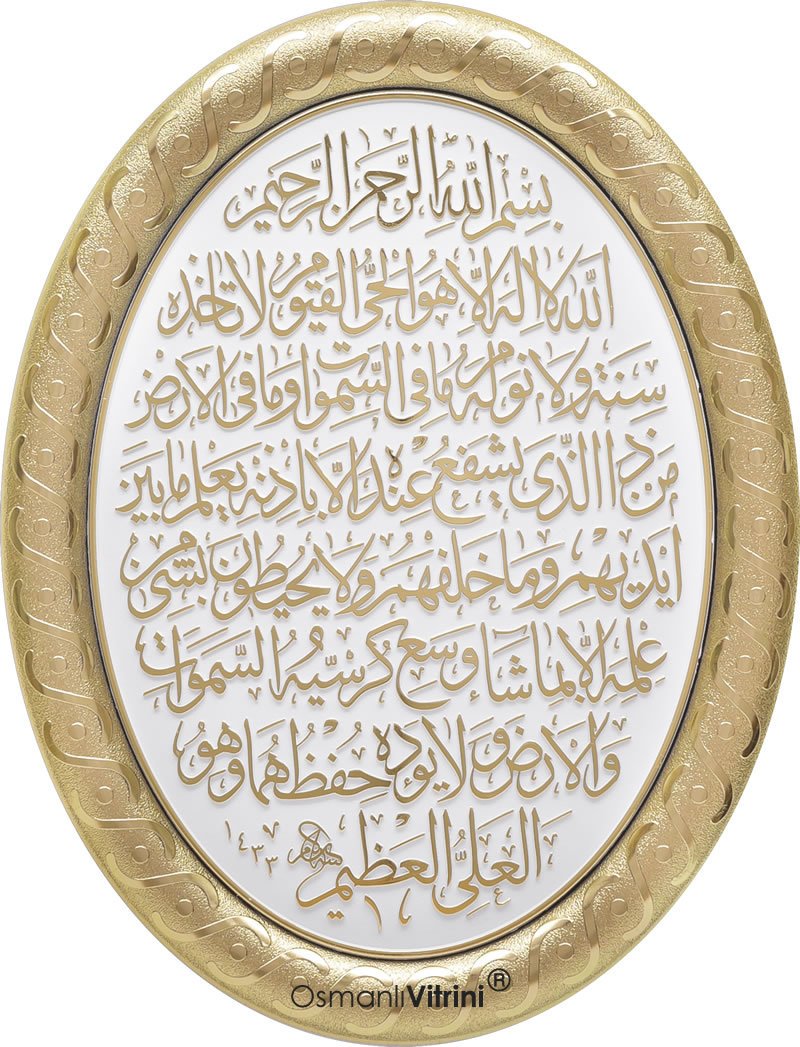 بسم الله الرحمن الرحيم
الله لا اله الا هو الحي القيوم لا تاخذه
سنة ولا نوم له ما في السموات وما في الارض
من ذا الذي يشفع عنده الا باذنه يعلم ما بين
ايديهم وما خلفهم ولا يحيطون بشيء من
علمه الا بما شاء وسع كرسيه السموات
والارض ولا يؤده حفظهما وهو
العلي العظيم
١٤٣٣
OsmanlıVitrini®